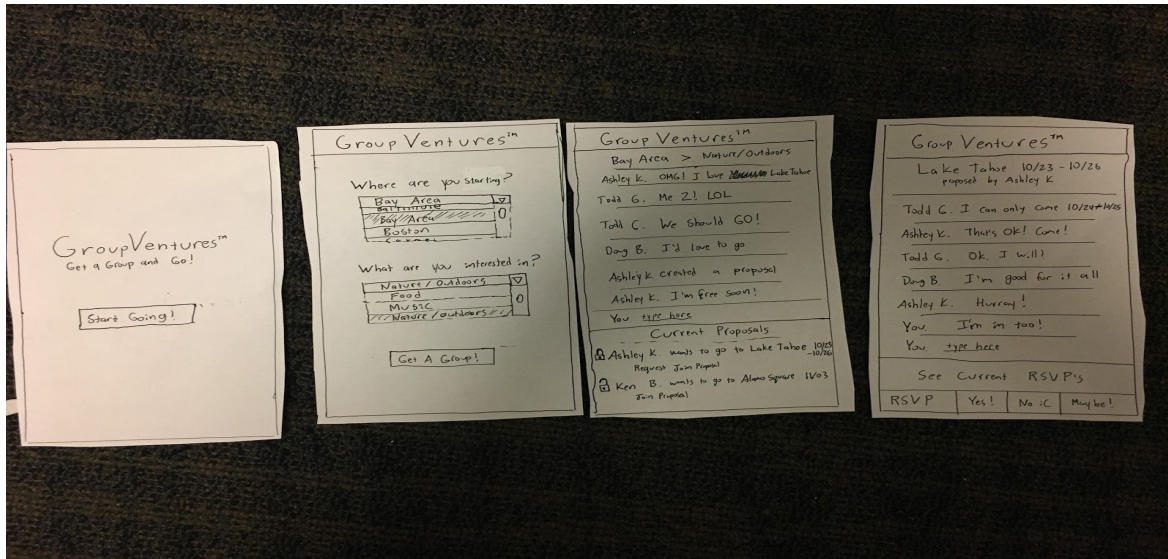 GroupVentures™
Get a Group and Go!
Start Going!
Group Ventures™
Where are you starting?
Bay Area
Baltimore
Bay Area
Boston
What are you interested in?
Nature/Outdoors
Food
Music
Nature/outdoors
Get A Group!
Group Ventures™
Bay Area > Nature/Outdoors
Ashley K. OMG! I love Lake Tahoe
Todd G. Me 2! LOL
Todd G. We Should GO!
Doug B. I'd love to go
Ashley K. created a proposal
Ashley K. I'm free soon!
You type here
Current Proposals
Ashley K. wants to go to Lake Tahoe 10/23
-10/26
Request Join Proposal
Ken B. wants to go to Alamo Square 11/03
Join Proposal
Group Ventures™
Lake Tahoe 10/23 - 10/26
proposed by Ashley K
Todd G. I can only come 10/24-10/25
Ashley K. That's OK! Come!
Todd G. Ok. I will!
Doug B. I'm good for it all
Ashley K. Hurray!
You. I'm in too!
You. type here
See Current RSVP's
RSVP Yes! No :C Maybe!